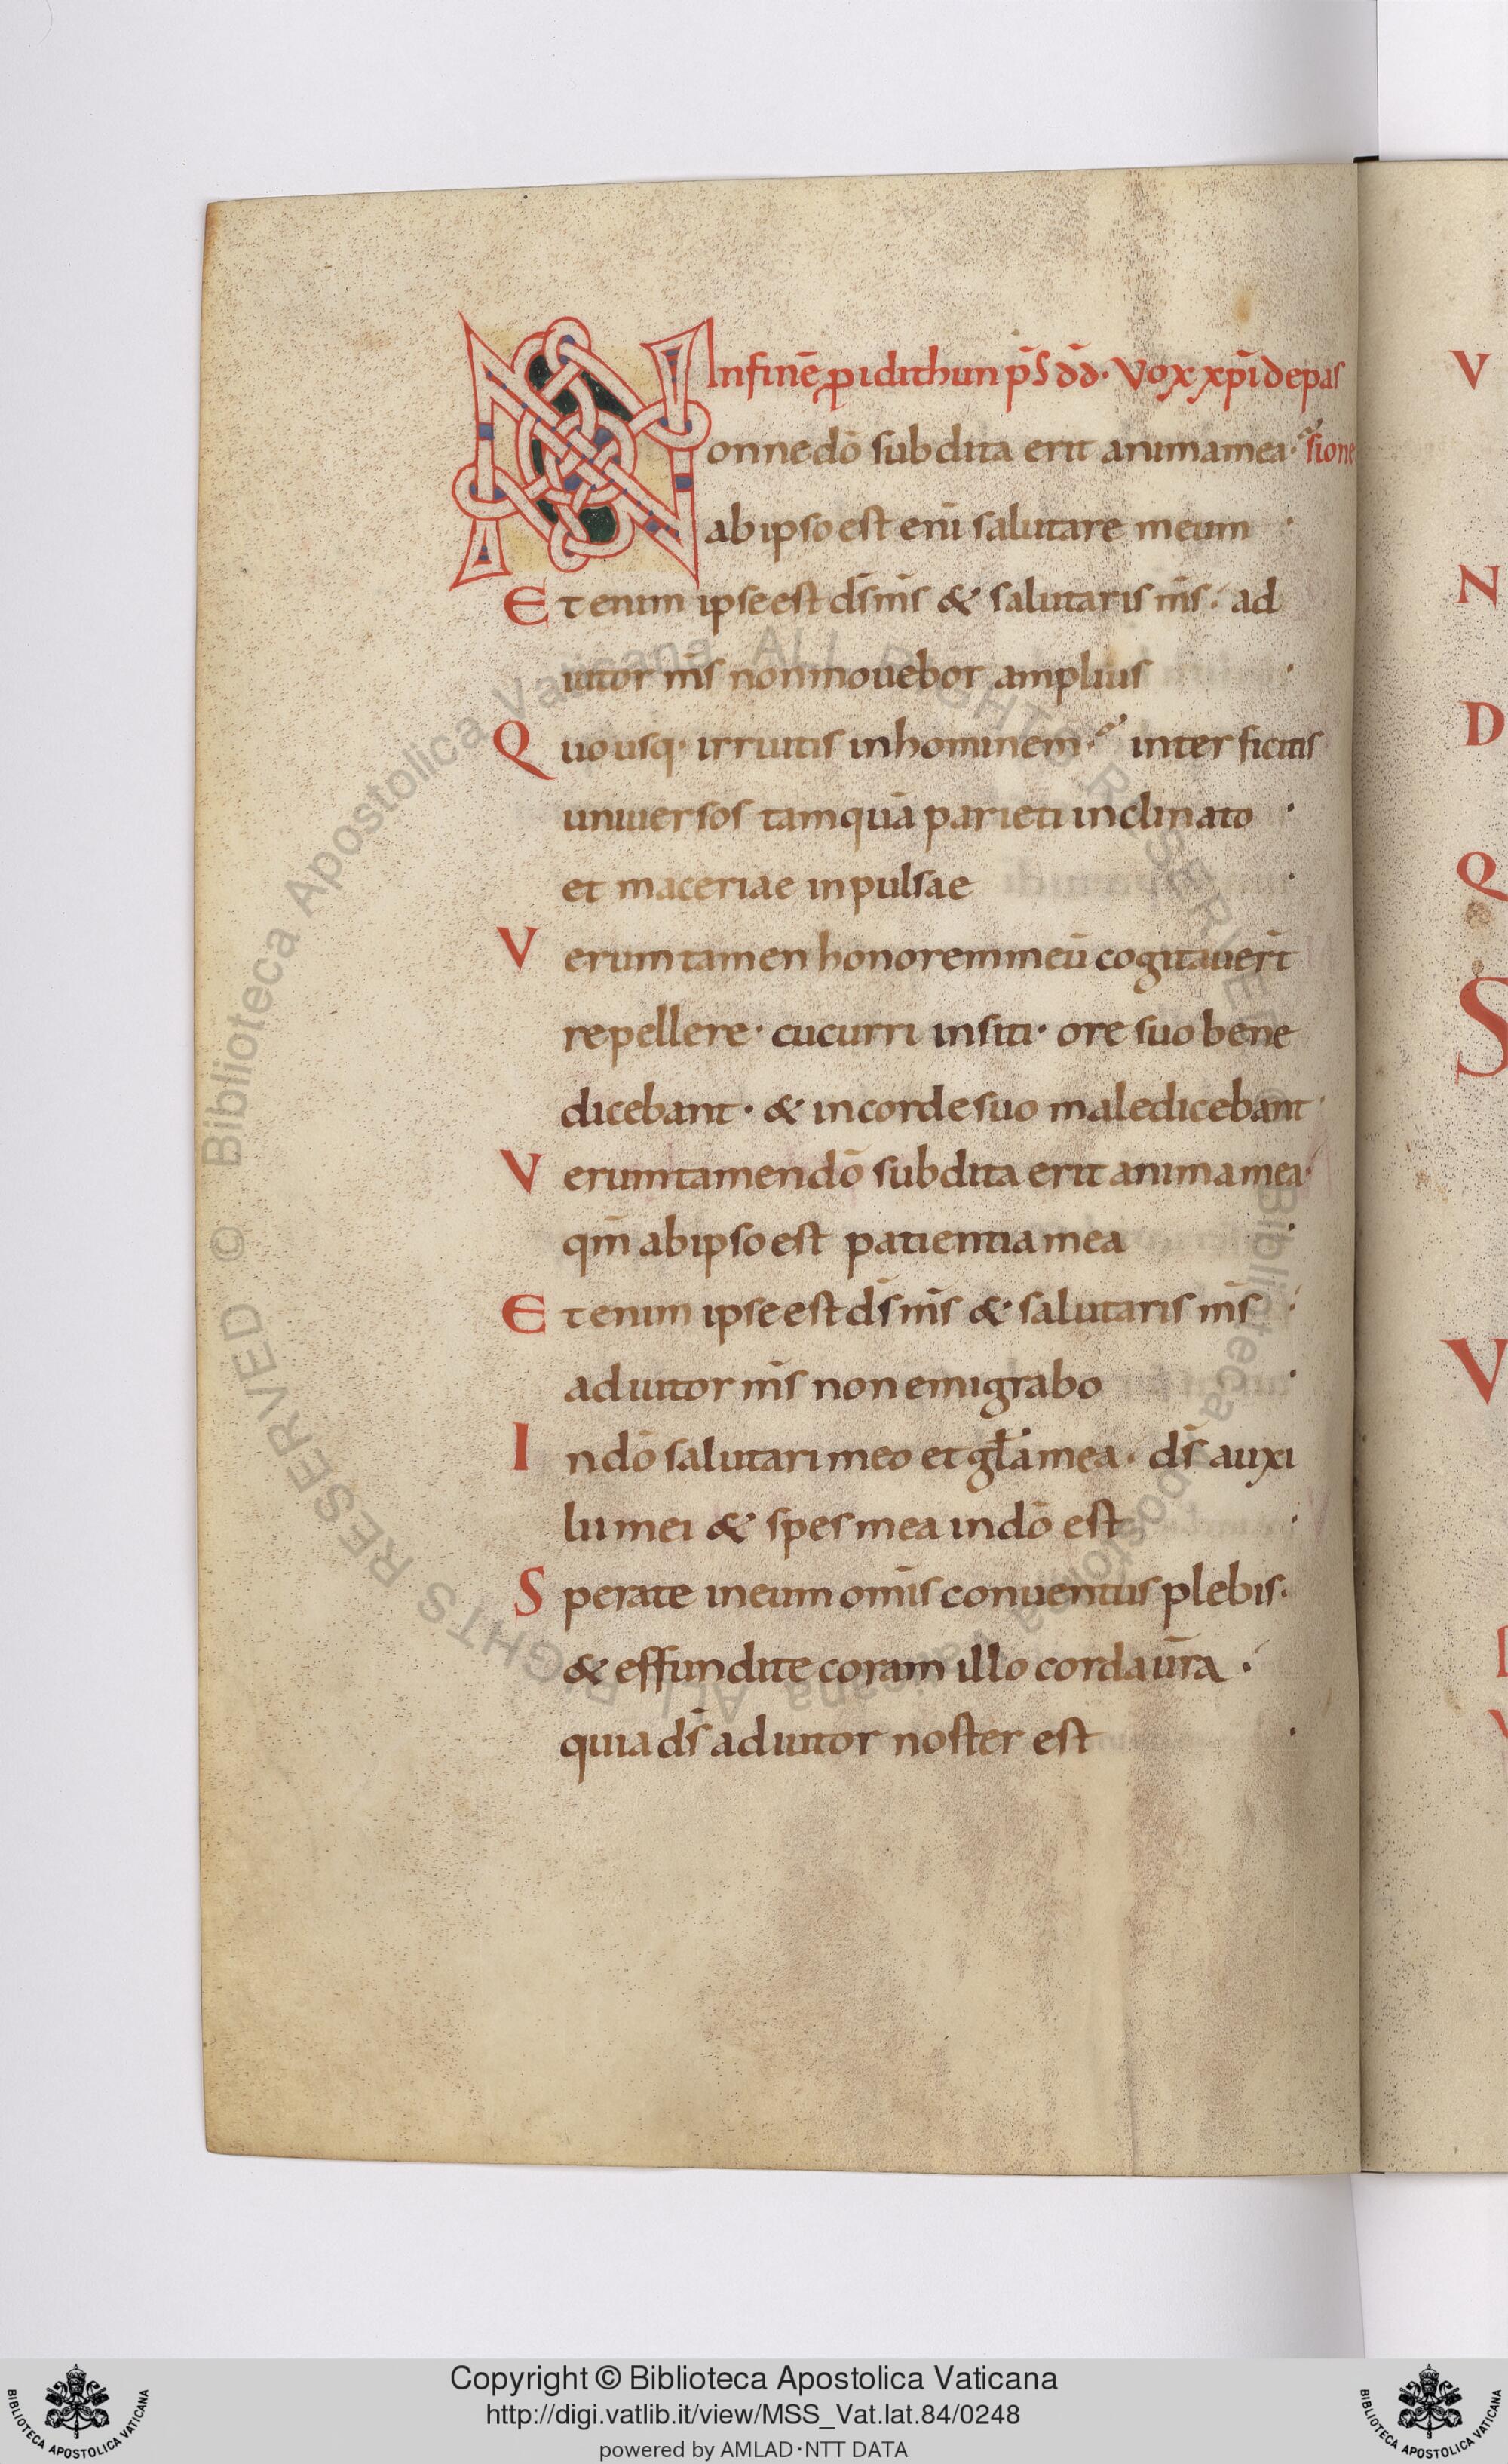 Infinē ꝓ idithun p̄s dd̄· Vox xp̄i depas
sione
Nonne dō subdita erit anima mea·
ab ipso est enī salutare meum ·
Etenim ipse est d̄s m̄s & salutaris m̄s· ad
iutor m̄s non mouebor amplius ·
Quousq· irruitis in hominem· interficitis
uniuersos tamquā parieti inclinato ·
et maceriae inpulsae ·
Verumtamen honorem meū cogitauer̄t
repellere· cucurri in siti· ore suo bene
dicebant· & in corde suo maledicebant·
Verumtamen dō subdita erit anima mea·
qm̄ ab ipso est patientia mea ·
Etenim ipse est d̄s m̄s & salutaris m̄s ·
adiutor m̄s non emigrabo ·
In dō salutari meo et gl̄a mea· d̄s auxi
lii mei & spes mea in dō est ·
Sperate in eum om̄is conuentus plebis·
& effundite coram illo corda ūra ·
quia d̄s adiutor noster est ·
V
N
D
Q
S
V
© Biblioteca Apostolica Vaticana ALL RIGHTS RESERVED
Biblioteca Apostolica Vaticana ALL RIGHTS RESERVED
Copyright © Biblioteca Apostolica Vaticana
http://digi.vatlib.it/view/MSS_Vat.lat.84/0248
powered by AMLAD·NTT DATA
BIBLIOTECA APOSTOLICA VATICANA
BIBLIOTECA APOSTOLICA VATICANA